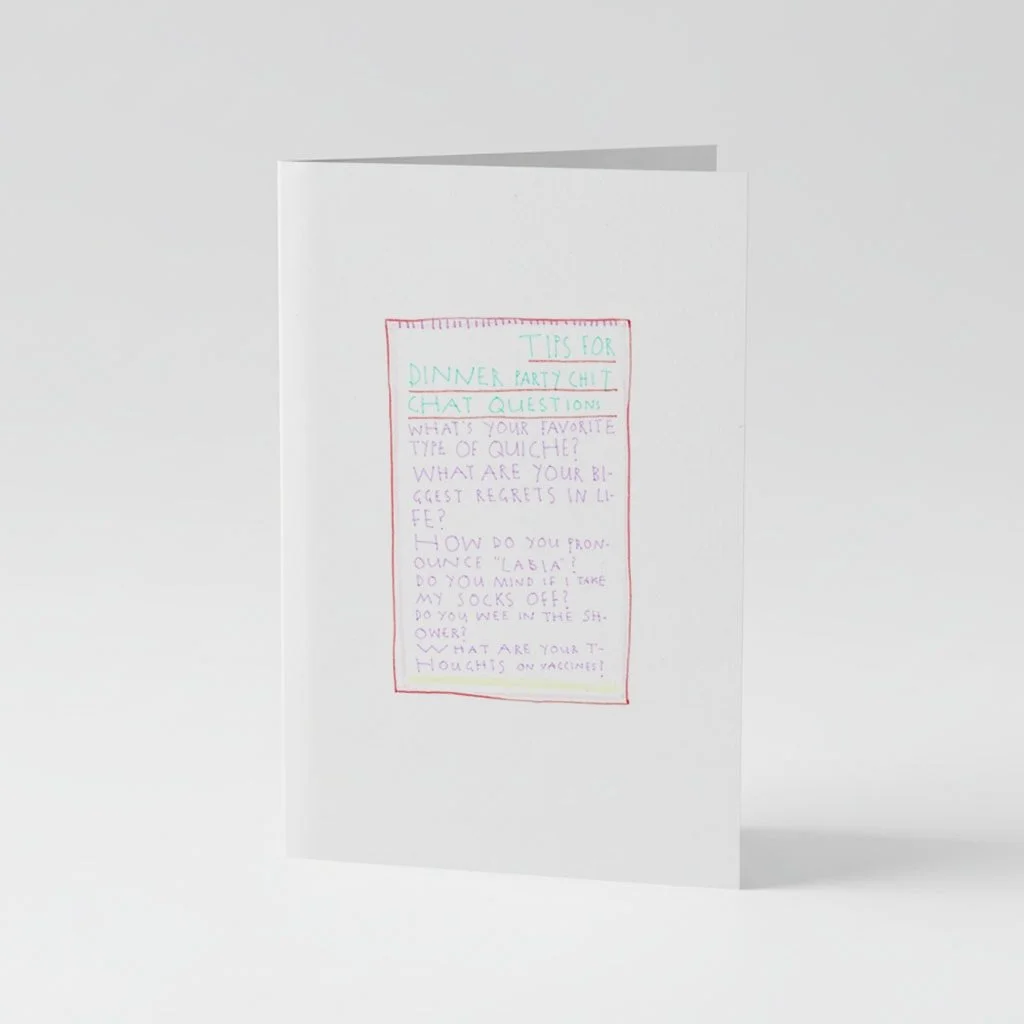 TIPS FOR
DINNER PARTY CHIT
CHAT QUESTIONS
WHAT'S YOUR FAVORITE
TYPE OF QUICHE?
WHAT ARE YOUR BI-
GGEST REGRETS IN LI-
FE?
HOW DO YOU PRON-
OUNCE "LABIA"?
DO YOU MIND IF I TAKE
MY SOCKS OFF?
DO YOU WEE IN THE SH-
OWER?
WHAT ARE YOUR T-
HOUGHTS ON VACCINES?